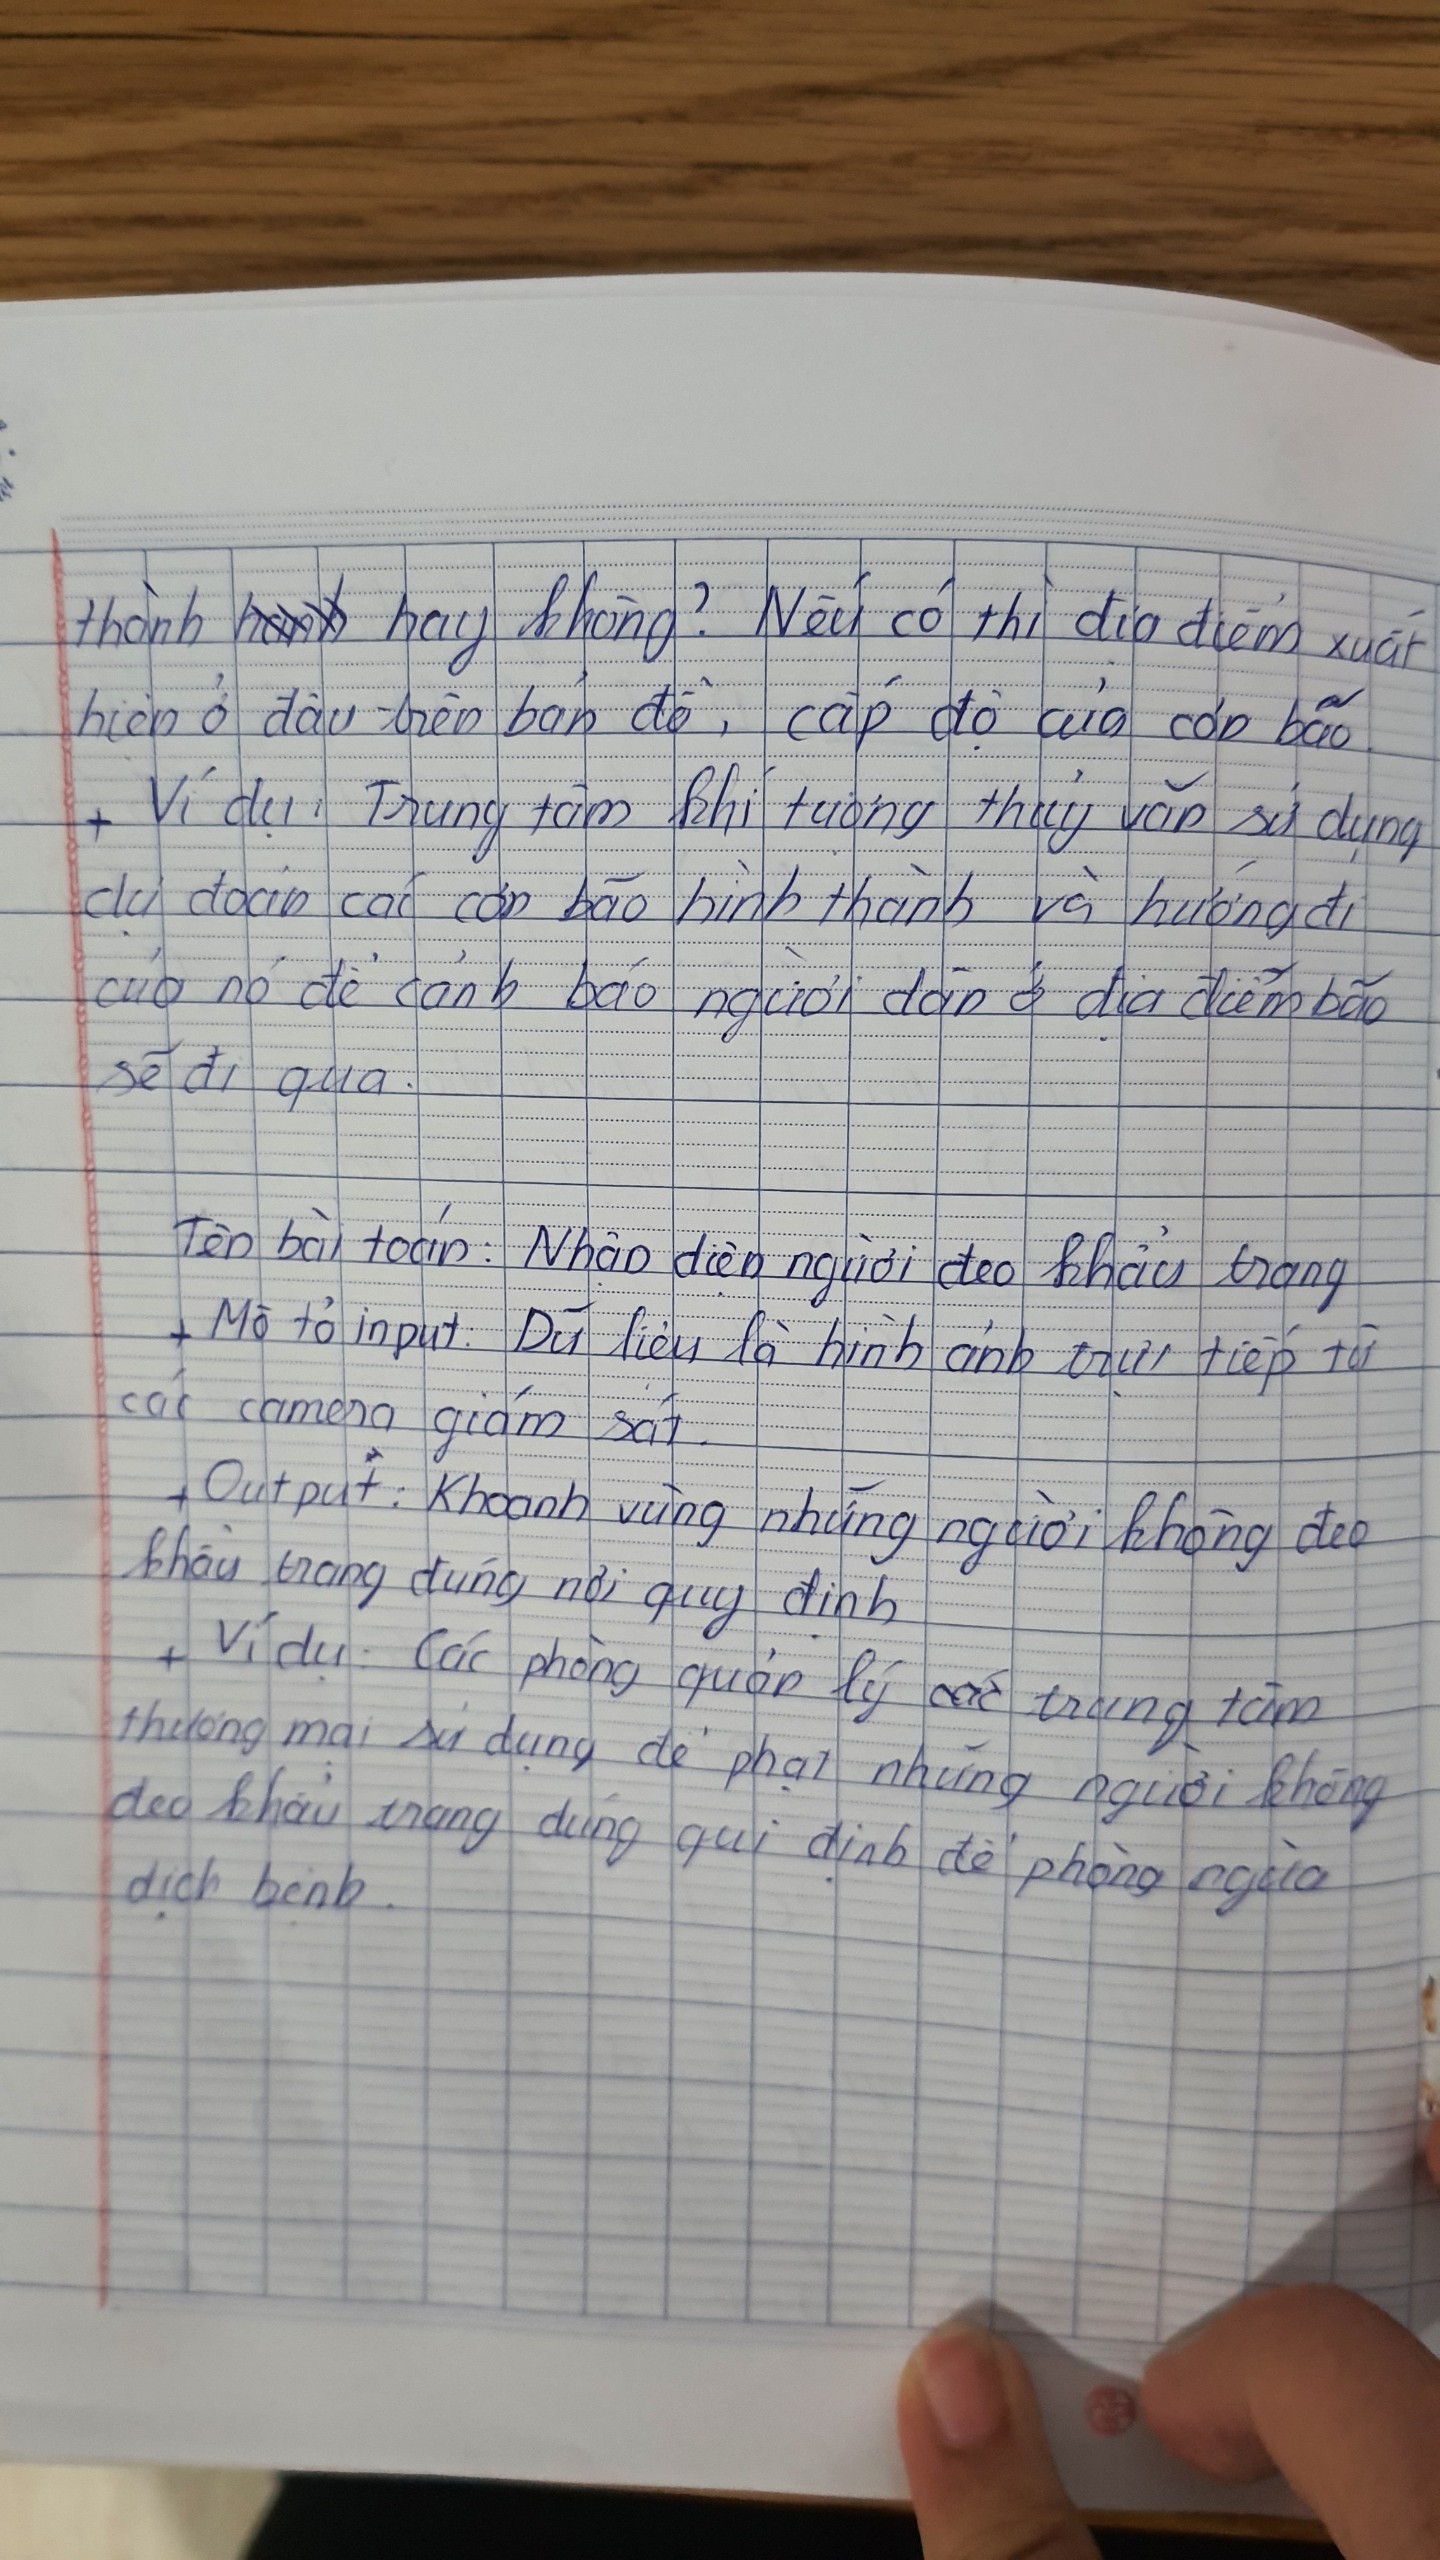 thành hay không? Nếu có thì địa điểm xuất
hiện ở đâu trên bản đồ, cấp độ của cơn bão.
+ Ví dụ: Trung tâm khí tượng thủy văn sử dụng
dự đoán các cơn bão hình thành và hướng đi
của nó để cảnh báo người dân ở địa điểm bão
sẽ đi qua.
Tên bài toán: Nhận diện người đeo khẩu trang
+ Mô tả input: Dữ liệu là hình ảnh trực tiếp từ
các camera giám sát.
+ Output: Khoanh vùng những người không đeo
khẩu trang đúng nơi quy định
+ Ví dụ: Các phòng quản lý các trung tâm
thương mại sử dụng để phạt những người không
đeo khẩu trang đúng qui định để phòng ngừa
dịch bệnh.